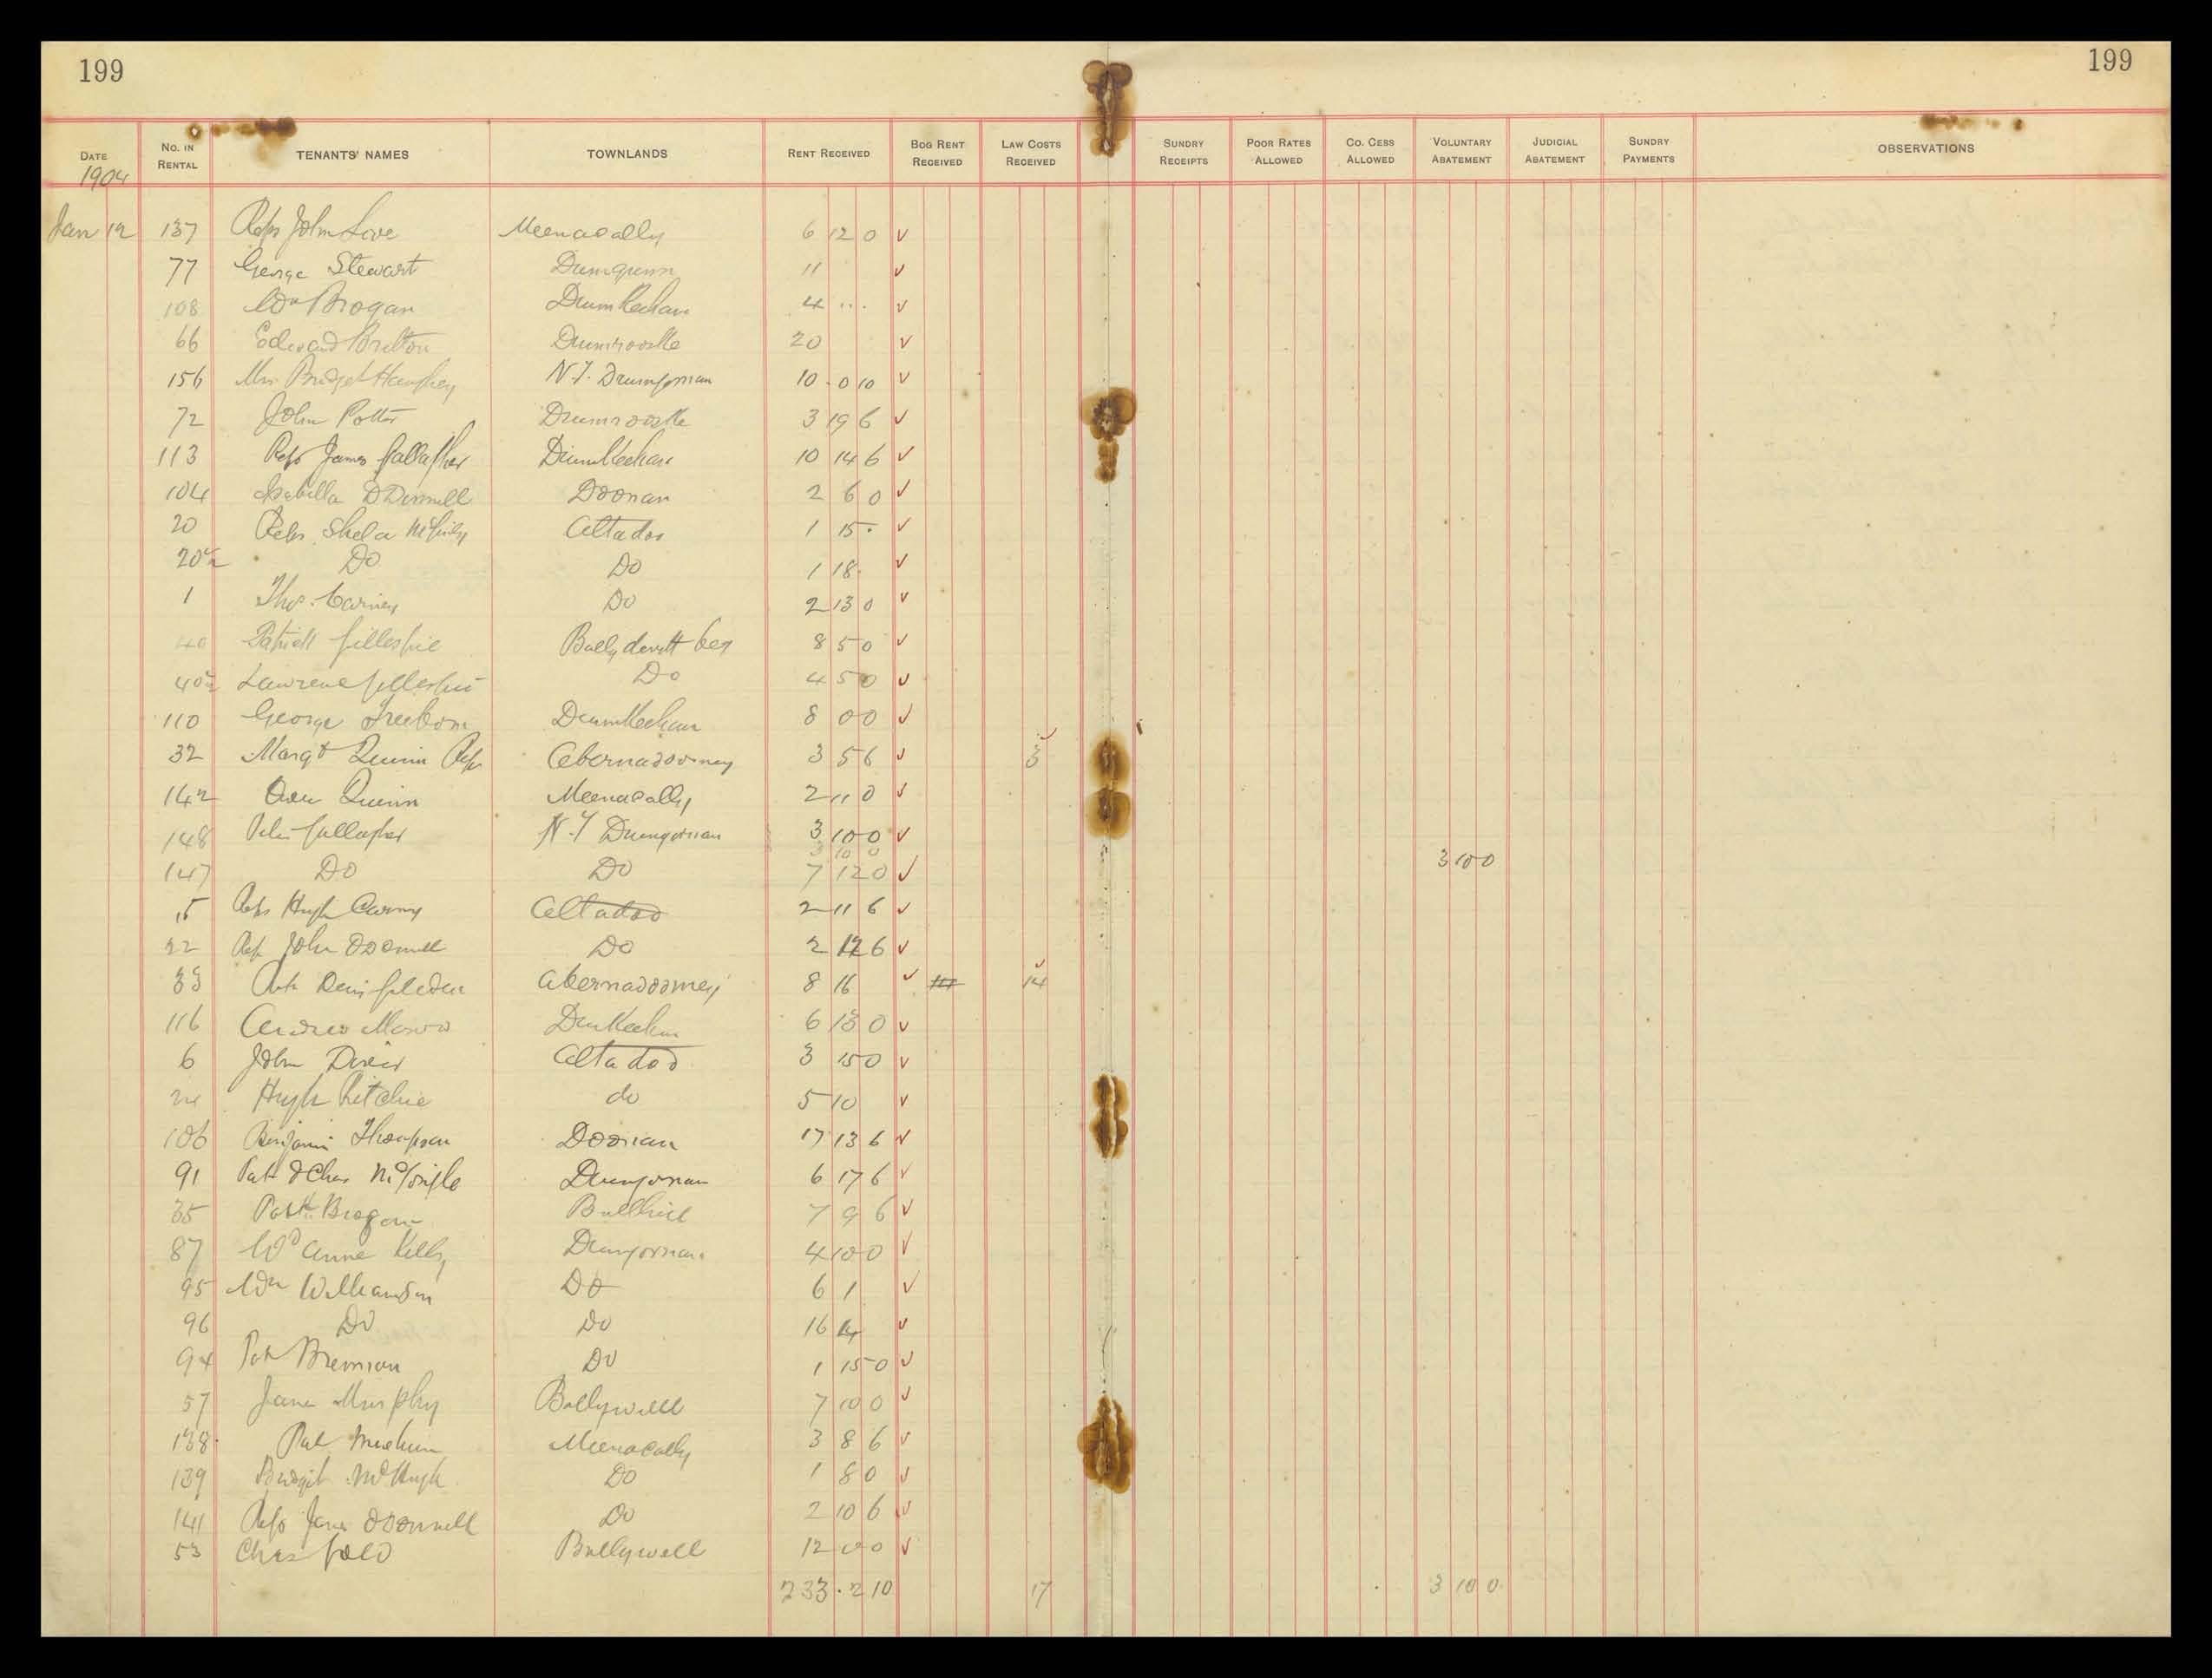 199 199
DATE No. IN RENTAL TENANTS' NAMES TOWNLANDS RENT RECEIVED BOG RENT RECEIVED LAW COSTS RECEIVED SUNDRY RECEIPTS POOR RATES ALLOWED CO. CESS ALLOWED VOLUNTARY ABATEMENT JUDICIAL ABATEMENT SUNDRY PAYMENTS OBSERVATIONS
1904
Jan 12 137 Reps John Love Meenacally 6 12 0
77 George Stewart 11
108 Wm Brogan Drumkeelan 4
66 Edward Britton Drumrooske 20
156 Mrs Bridget Haughey N.T. Drumgorman 10 0 10
72 John Potter Drumrooske 3 19 6
113 Reps James Gallagher Drumkeelan 10 14 6
104 Isabella ODonnell Doonan 2 6 0
20 Reps Shela Altadoo 1 15
20a Do Do 1 18
1 Thos. Carney Do 2 13 0
40 Patrick Gillespie Ballydevitt beg 8 5 0
40a Lawrence Gillespie Do 4 5 0
110 George Drumkeelan 8 0 0
32 Margt Quinn Reps Abernadoorney 3 5 6 3
142 Owen Quinn Meenacally 2 11 0
148 Peter Gallagher N.T Drumgorman 3 10 0
3 10 0 3 10 0
147 Do Do 7 12 0
5 Reps Hugh Carney Altadoo 2 11 6
22 Rep John ODonnell Do 2 12 6
33 Denis Abernadoorney 8 16 14
116 Andrew Drumkeelan 6 13 0
6 John Altadoo 3 15 0
Hugh Ritchie do 5 10
106 Benjamin Thompson Doonan 17 13 6
91 Pat & Chas McGonigle Drumgorman 6 17 6
35 Patk Brogan 7 9 6
87 Wd Anne Kelly Drumgorman 4 10 0
95 Wm Williamson Do 6 1
96 Do Do 16 4
94 Pat Brennan Do 1 15 0
57 Jane Murphy Ballyweell 7 10 0
138 Pat Meehan Meenacally 3 8 6
139 Bridget McHugh Do 1 8 0
141 Reps James ODonnell Do 2 10 6
53 Chas Ballyweell 12 0 0
233 2 10 17 3 10 0